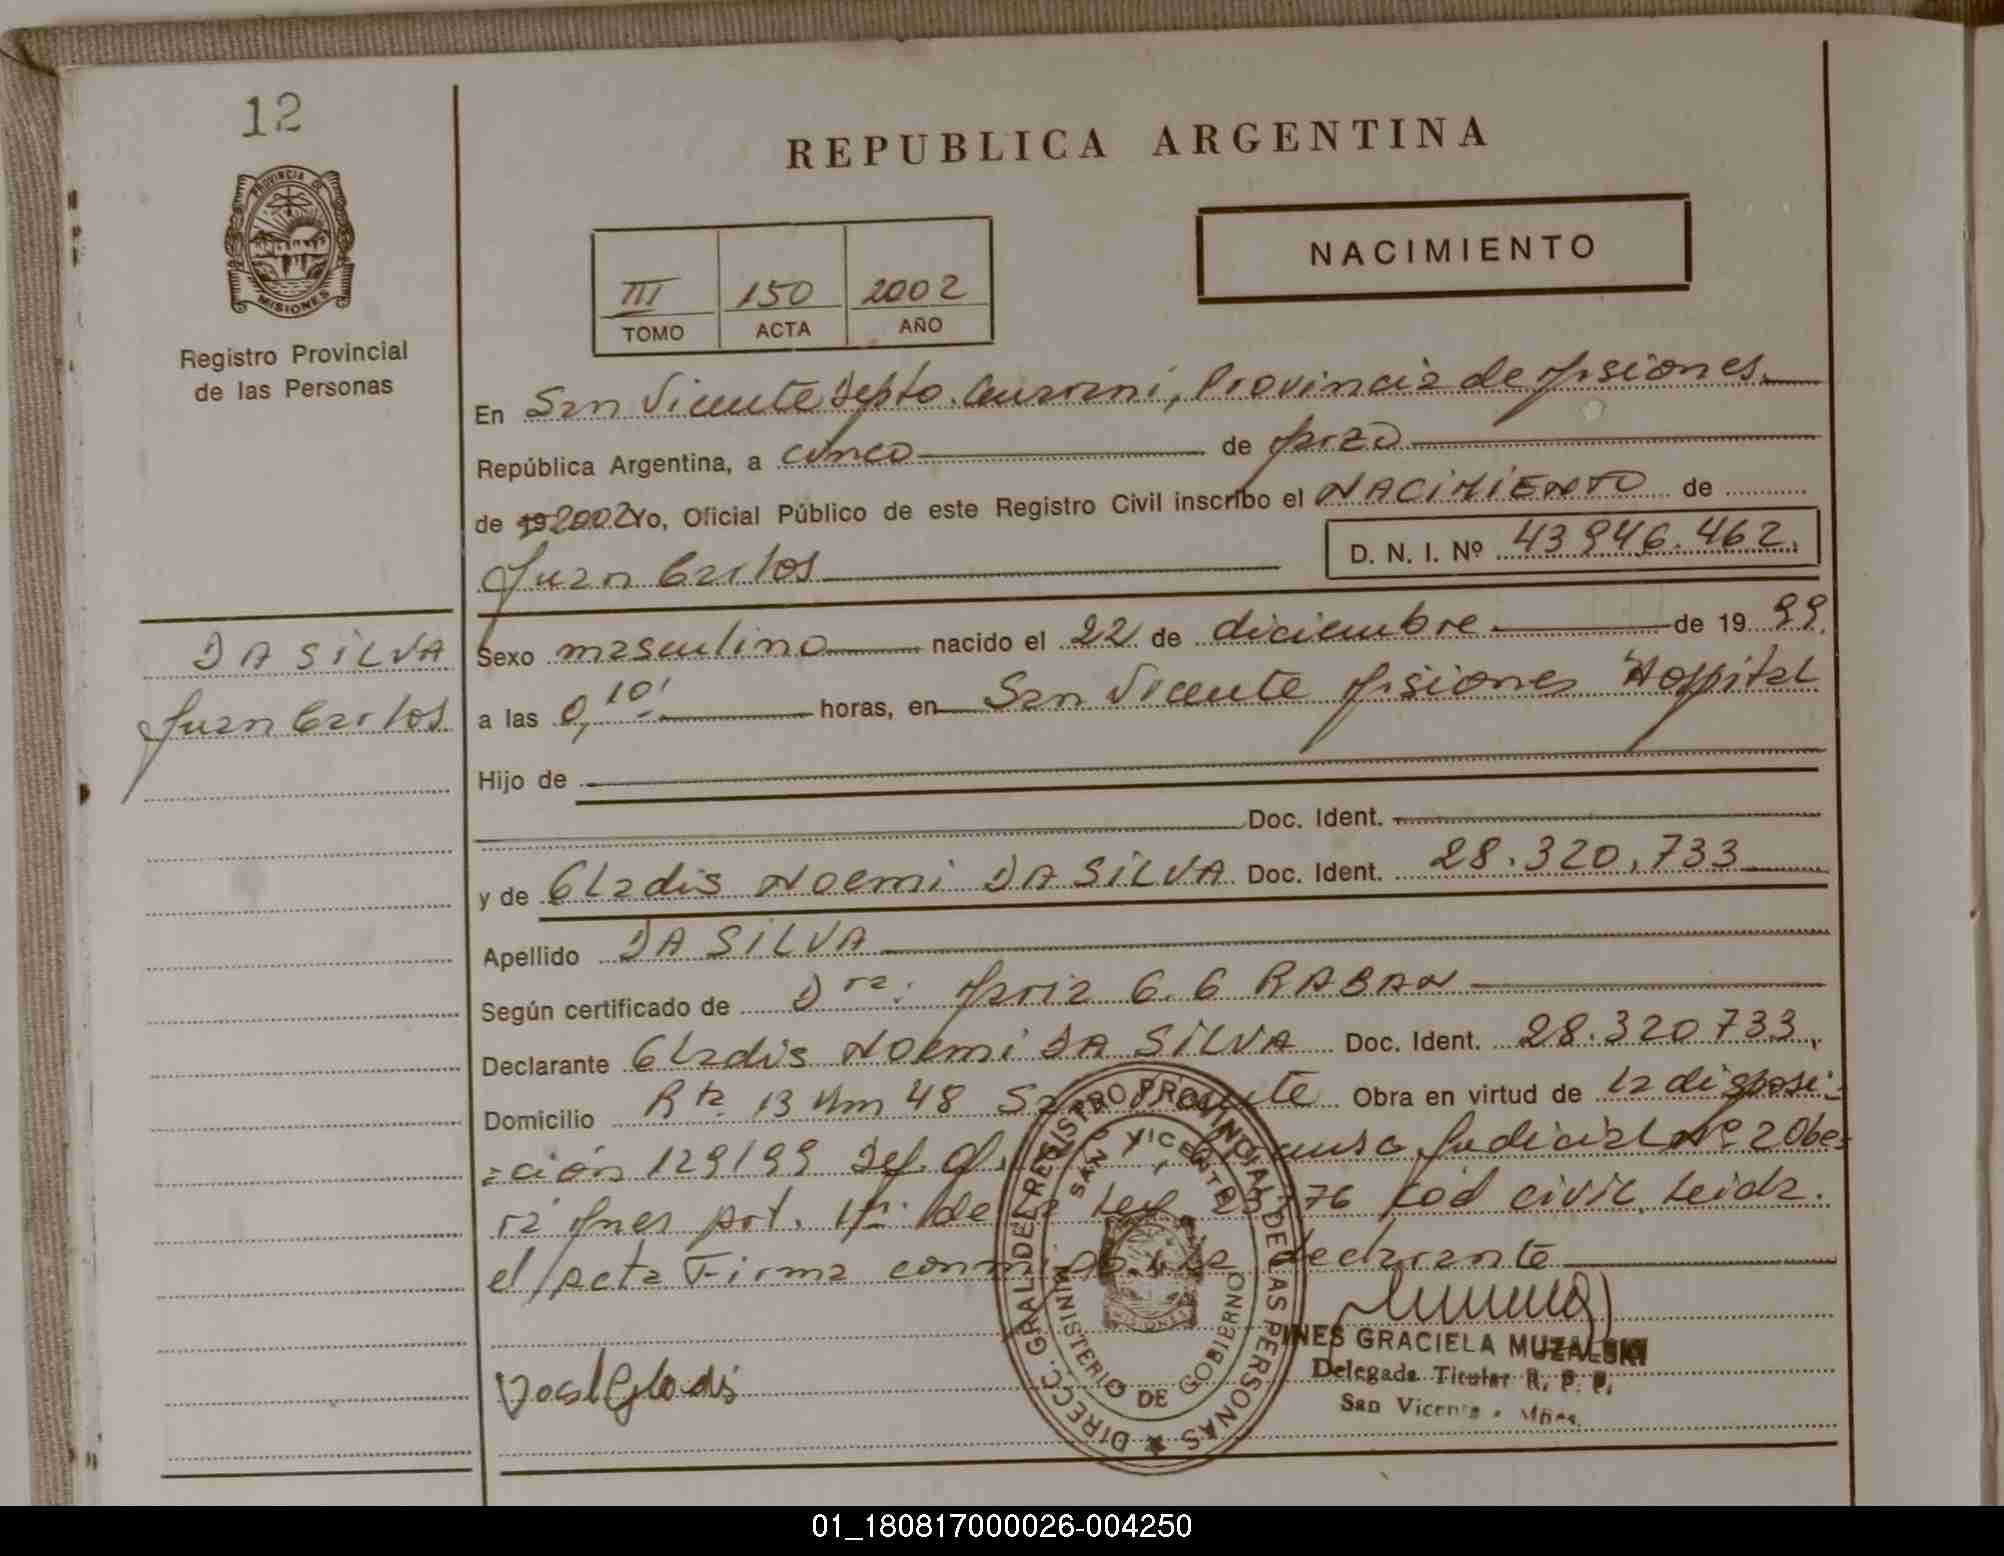 12
REPUBLICA ARGENTINA
PROVINCIA DE
MISIONES
Registro Provincial
de las Personas
NACIMIENTO
III 150 2002
TOMO ACTA AÑO
En San Vicente Depto. Guaraní, Provincia de Misiones.
República Argentina, a cinco de Marzo
de 19 2002 Yo, Oficial Público de este Registro Civil inscribo el NACIMIENTO de
Juan Carlos D. N. I. Nº 43 946.462.
DA SILVA
Juan Carlos
Sexo masculino nacido el 22 de diciembre de 19 99.
a las 0,10' horas, en San Vicente Misiones Hospital
Hijo de
Doc. Ident.
y de Gladis Noemi DA SILVA Doc. Ident. 28.320.733
Apellido DA SILVA
Según certificado de Dra: Maria G. G RABAN
Declarante Gladis Noemi DA SILVA Doc. Ident. 28.320 733.
Domicilio Rta 13 Km 48 San Vicente Obra en virtud de la disposi-
=ción 129/99 Def. Judicial Nº 2 Obe=
rá Mnes Art. 1º de la Ley Cód civil. Leida
el Acta Firma conmigo la declarante
DIRECC. GRAL. DEL REGISTRO PROVINCIAL DE LAS PERSONAS
SAN VICENTE
MISIONES
MINISTERIO DE GOBIERNO
INES GRACIELA MUZALSKI
Delegada Titular R. P. P.
San Vicente - Mnes.
01_180817000026-004250